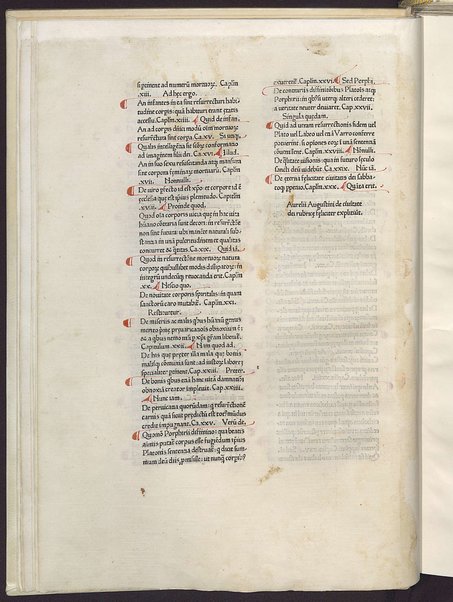 si ptineat ad numerū mortuoꝝ. Caplm
.xiii. Ad hec ergo.
An infantes in ea sint resurrecturi habi
tudine corpis: quā habituri erant etatis
accessu. Caplm .xiiii. Quid de infan.
An ad corpis dn̄ici modū oīm mortuoꝝ
resurrectura sint corpa. Ca.xv. Si nr̄os
Qualis intelligēda sit scōꝝ conformatio
ad imaginem filii dei. Ca.xvi. Illud.
An in suo sexu resuscitanda atqꝫ mansura
sint corpora feminaꝝ mortuaꝝ. Caplm
.xvii. Nonnulli.
De uiro pfecto id est xp̄o: et corpore id ē
ecclesia que est ipsius plenitudo. Capitlm
.xviii. Proinde quod.
Quod oīa corporis uitia que in hac uita
huano obtraria sunt decori: in resurrectiōe
non sint futura: ubi manēte naturali sub-
stantia in unā pulcritudinem et qualitas
concurret et quātitas. Ca.xix. Quid iā.
Quod in resurrectiōne mortuoꝝ natura
corpoꝝ quibuslibet modis dissipatoꝝ: in
integrū undecūqꝫ reuocanda erit. Caplm
.xx. Absit autem.
De nouitate corporis spiritalis: in quam
sanctoꝝ caro mutabit. Caplm .xxi.
Restituetur.
De miseriis ac malis qbus hūanū genus
merito pime preuaricatiōis obnoxium ē:
et a qbus nemo nisi p xp̄i grām liberat.
Capitulum .xxii. Nam quod ad.
De his que preter illa mala que bonis
malisqꝫ cōmunia sunt: ad iustoꝝ laborē
specialiter ptinent. Cap.xxiii. Preter.
De bonis qbus etiā hanc uitā damnatiōi
obnoxiā creator impleuit. Cap.xxiiii.
Nunc iam.
De peruicatia quorūdam: q resurrectiōnē
carnis quā sicut predictū est totꝰ mūdus
credit impugnant. Ca.xxv. Verū de.
Quomō Porphirii diffinitio: qua beatis
animis putat corpus esse fugiēdum ipsius
Platonis sententia destruat: q dicit sum-
mum deū diis pmisisse: ut nunqꝫ corpibꝰ
exuerent. Caplm .xxvi. Sed Porphi.
De contrariis diffinitionibus Platōis atqꝫ
Porphirii: in qbus si uterqꝫ alteri cederet:
a ueritate neuter deuiaret. Cap.xxvii.
Singula quedam.
Quid ad ueram resurrectionis fidem uel
Plato uel Labeo uel etiā Varro conferre
potuerint: si opiniōes eoꝝ ī unā sententiā
cōuenissent. Caplm .xxviii. Nōnulli.
De q̄litate uisionis: qua in futuro seculo
sancti deū uidebūt. Ca.xxix. Nūc iā.
De eterna felicitate ciuitatis dei sabba-
toqꝫ ppetuo. Caplm .xxx. Quāta erit.
Aurelii Augustini de ciuitate
dei rubrice feliciter expliciūt.